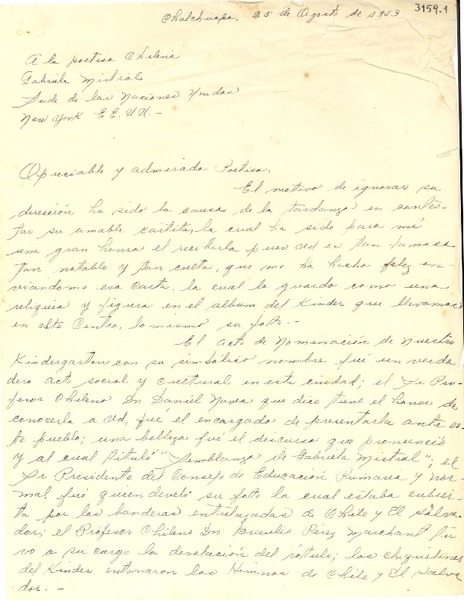 3159.1
Chalchuapa, 25 de Agosto de 1953
A la poetisa Chilena
Gabriela Mistral
Sede de las Naciones Unidas
New York EE. UU. -
Apreciable y admirada Poetisa:
El motivo de ignorar su
dirección ha sido la causa de la tardanza en contes-
tar su amable cartita, la cual ha sido para mí
una gran honra el recibirla pues Ud es tan famosa
tan notable y tan culta, que me ha hecho feliz en-
viándome esa carta, la cual la guardo como una
reliquia y figura en el album del Kinder que llevamos
en este Centro, lo mismo su foto. -
El acto de Nominación de Nuestro
Kindergarten con su simbólico nombre fué un verda
dero acto social y cultural en esta ciudad; el Sr Pro-
fesor Chileno Dn Daniel Navea que dice tiene el honor de
conocerla a Ud, fué el encargado de presentarla ante es-
te pueblo; una belleza fué el discurso que pronunció
y al cual tituló "Semblanza de Gabriela Mistral"; el
Sr Presidente del Consejo de Educación Primaria y Nor-
mal fué quien develó su foto la cual estaba cubier
ta por las banderas entrelazadas de Chile y El Salva-
dor; el Profesor Chileno Dn Braulio Pérez Marchant tu-
vo a su cargo la develación del rótulo; los chiquitines
del Kinder entonaron los Himnos de Chile y El Salva
dor. -